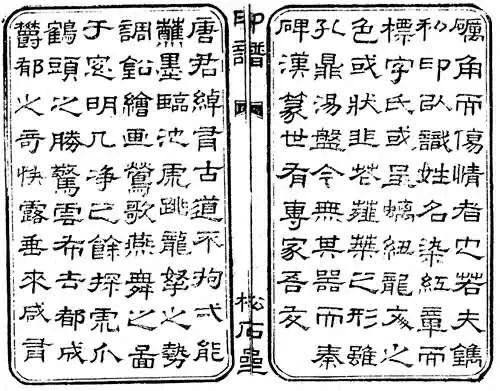 礪角而傷情者也若夫鐫
私印以識姓名染紅章而
標字氏或呈螭紐龍文之
色或狀韭花薤葉之形雖
孔鼎湯盤今無其器而秦
碑漢篆世有專家吾友
印譜
松石
唐君綽有古道不拘弌能
蘸墨臨池虎跳龍拏之勢
調鉛繪画鶯歌燕舞之啚
于窓明几净之餘探虎爪
鶴頭之勝驚雲布去都成
欝郁之奇快露垂來咸有